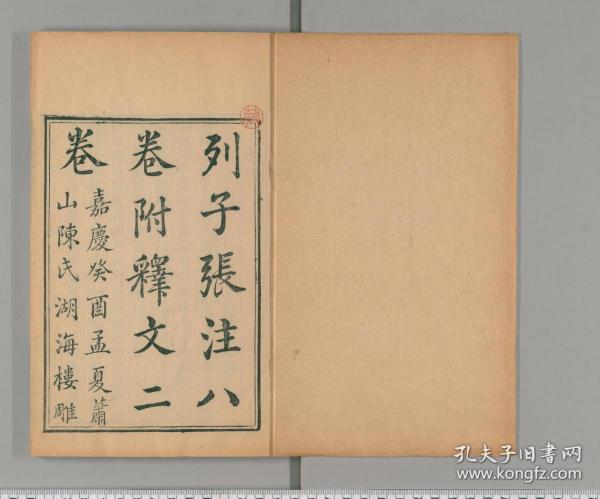 列子張注八
卷附釋文二
卷
嘉慶癸酉孟夏蕭
山陳氏湖海樓雕
孔夫子旧书网
www.kongfz.com